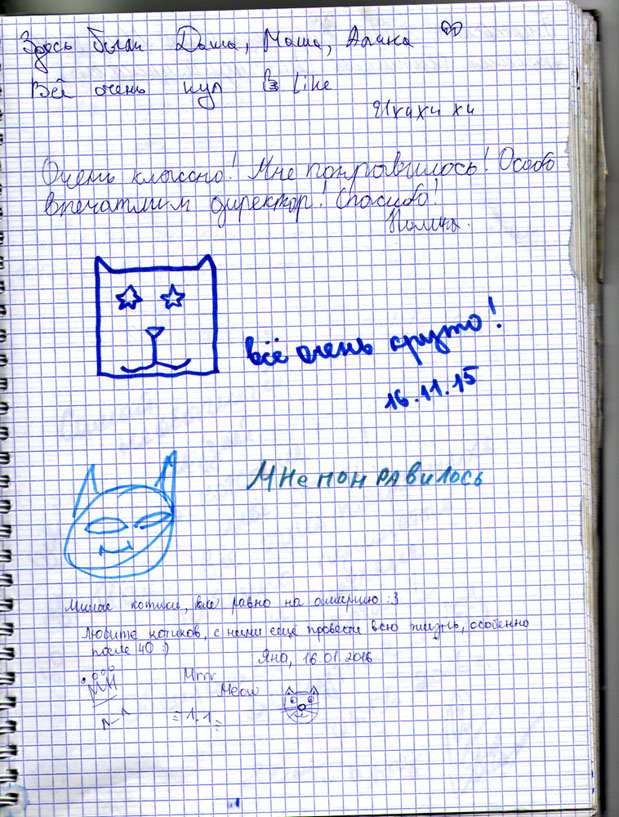 Здесь были Даша, Маша, Алина
Всё очень кул Like
Ихихи хи
Очень классно! Мне понравилось! Особо
впечатлил директор! Спасибо!
Полина.
всё очень круто!
16.11.15
Мне понравилось
Милые котики, все равно на аллергию :3
Любите котиков, с ними ещё провести всю жизнь, особенно
после 40 :)
Яна, 16.01.2016
Mrrr
Meow